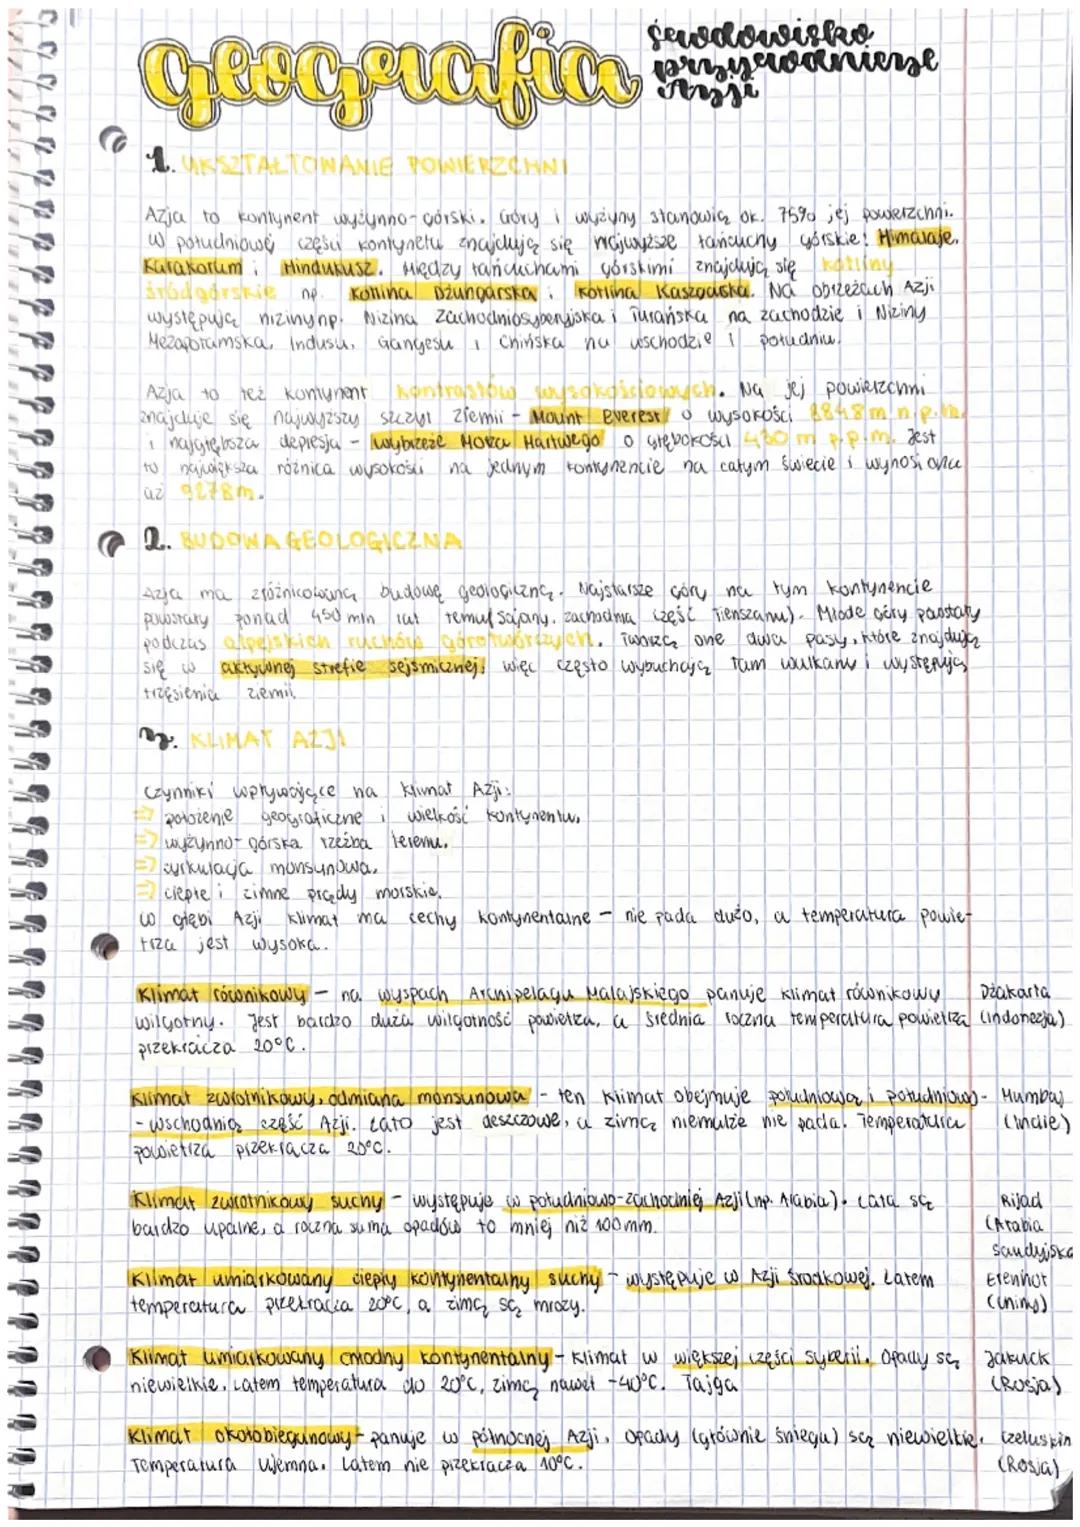 geografia środowisko
przyrodnicze
Azji
1. UKSZTAŁTOWANIE POWIERZCHNI
Azja to kontynent wyżynno-górski. Góry i wyżyny stanowią ok. 75% jej powierzchni.
W południowej części kontynetu znajdują się najwyższe łańcuchy górskie: Himalaje,
Karakorum i Hindukusz. Między łańcuchami górskimi znajdują się kotliny
śródgórskie np. Kotlina Dżungarska i Kotlina Kaszgarska. Na obrzeżach Azji
występują niziny np. Nizina Zachodniosyberyjska i Turańska na zachodzie i Niziny
Mezopotamska, Indusu, Gangesu i Chińska na wschodzie i południu.
Azja to też kontynent kontrastów wysokościowych. Na jej powierzchni
znajduje się najwyższy szczyt Ziemii - Mount Everest o wysokości 8848 m n.p.m.
i najgłębsza depresja - wybrzeże Morza Martwego o głębokości 430 m p.p.m. Jest
to największa różnica wysokości na jednym kontynencie na całym świecie i wynosi ona
aż 9278m.
2. BUDOWA GEOLOGICZNA
Azja ma zróżnicowaną budowę geologiczną. Najstarsze góry na tym kontynencie
powstały ponad 450 mln lat temu (Sajany, zachodnia część Tienszanu). Młode góry powstały
podczas alpejskich ruchów górotwórczych. Tworzą one dwa pasy, które znajdują
się w aktywnej strefie sejsmicznej, więc często wybuchają tam wulkany i występują
trzęsienia ziemii.
3. KLIMAT AZJI
Czynniki wpływające na klimat Azji:
⇒ położenie geograficzne i wielkość kontynentu,
⇒ wyżynno-górska rzeźba terenu,
⇒ cyrkulacja monsunowa,
⇒ ciepłe i zimne prądy morskie.
W głębi Azji klimat ma cechy kontynentalne - nie pada dużo, a temperatura powie-
trza jest wysoka.
Klimat równikowy - na wyspach Archipelagu Malajskiego panuje klimat równikowy Dżakarta
wilgotny. Jest bardzo duża wilgotność powietrza, a średnia roczna temperatura powietrza (Indonezja)
przekracza 20°C.
Klimat zwrotnikowy, odmiana monsunowa - ten klimat obejmuje południową i południowo- Mumbaj
-wschodnią część Azji. Lato jest deszczowe, a zimą niemalże nie pada. Temperatura (Indie)
powietrza przekracza 20°C.
Klimat zwrotnikowy suchy - występuje w południowo-zachodniej Azji (np. Arabia). Lata są Rijad
bardzo upalne, a roczna suma opadów to mniej niż 100mm. (Arabia
Saudyjska
Klimat umiarkowany ciepły kontynentalny suchy - występuje w Azji Środkowej. Latem Erenhot
temperatura przekracza 20°C, a zimą są mrozy. (Chiny)
Klimat umiarkowany chłodny kontynentalny - klimat w większej części Syberii. Opady są Jakuck
niewielkie. Latem temperatura do 20°C, zimą nawet -40°C. Tajga (Rosja)
Klimat okołobiegunowy - panuje w północnej Azji. Opady (głównie śniegu) są niewielkie. Czeluskin
Temperatura ujemna. Latem nie przekracza 10°C. (Rosja)